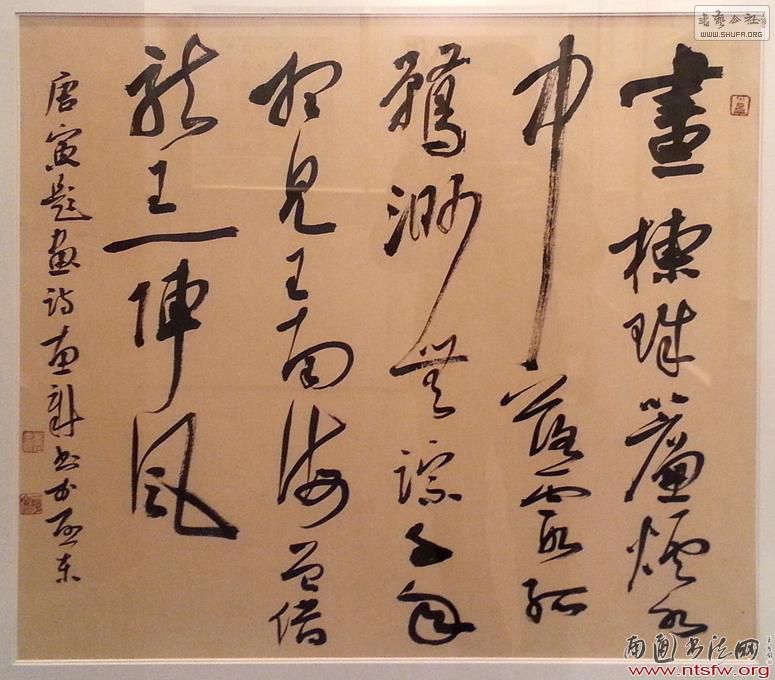 畫棟珠簾煙水
中落霞孤
鶩渺無踪千年
想見王南海曾借
龍王一陣風
唐寅题画诗書於東
書藝公社
WWW.SHUFA.ORG
南通书法网
www.ntsfw.org